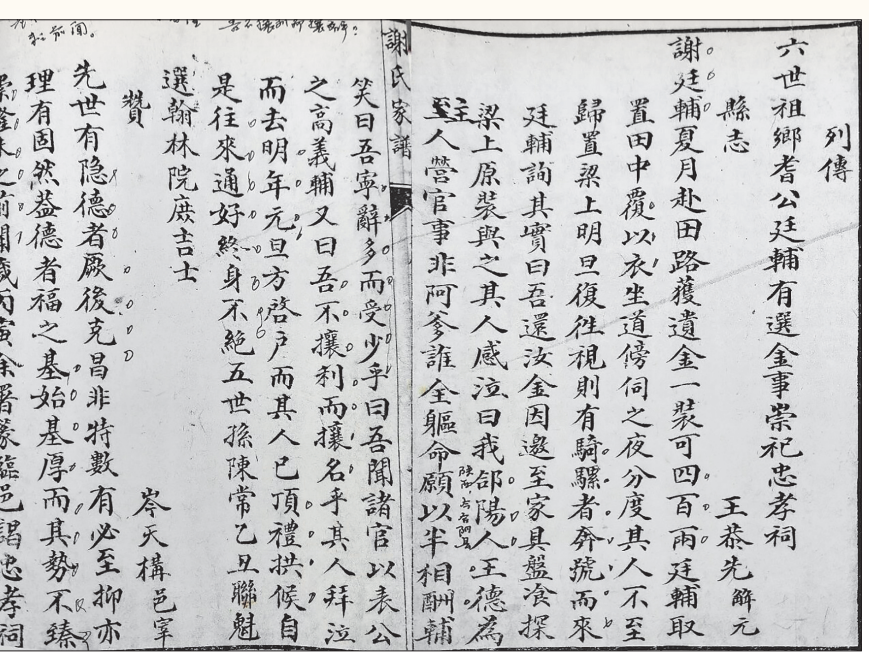 列傳
六世祖鄉耆公廷輔有選金事崇祀忠孝祠
縣志 王恭先 解元
謝廷輔夏月赴田路獲遺金一裝可四百兩廷輔取
置田中覆以衣坐道傍伺之夜分度其人不至
歸置梁上明旦復徃視則有騎騾者奔號而來
廷輔詢其實曰吾還汝金因邀至家具盤飡探
梁上原裝與之其人感泣曰我郃陽人王德為
主人營官事非阿爹誰全軀命願以半相酬輔
謝氏家譜
笑曰吾寧辭多而受少乎曰吾聞諸官以表公
之高義輔又曰吾不攘利而攘名乎其人拜泣
而去明年元旦方啓戶而其人已頂禮拱候自
是往來通好終身不絕五世孫陳常乙丑聯魁
選翰林院庶吉士
贊 岑天構 邑宰
先世有隐德者厥後克昌非特數有必至抑亦
理有固然葢德者福之基始基厚而其勢不臻
之前聞歲丙寅余署篆臨邑謁忠孝祠